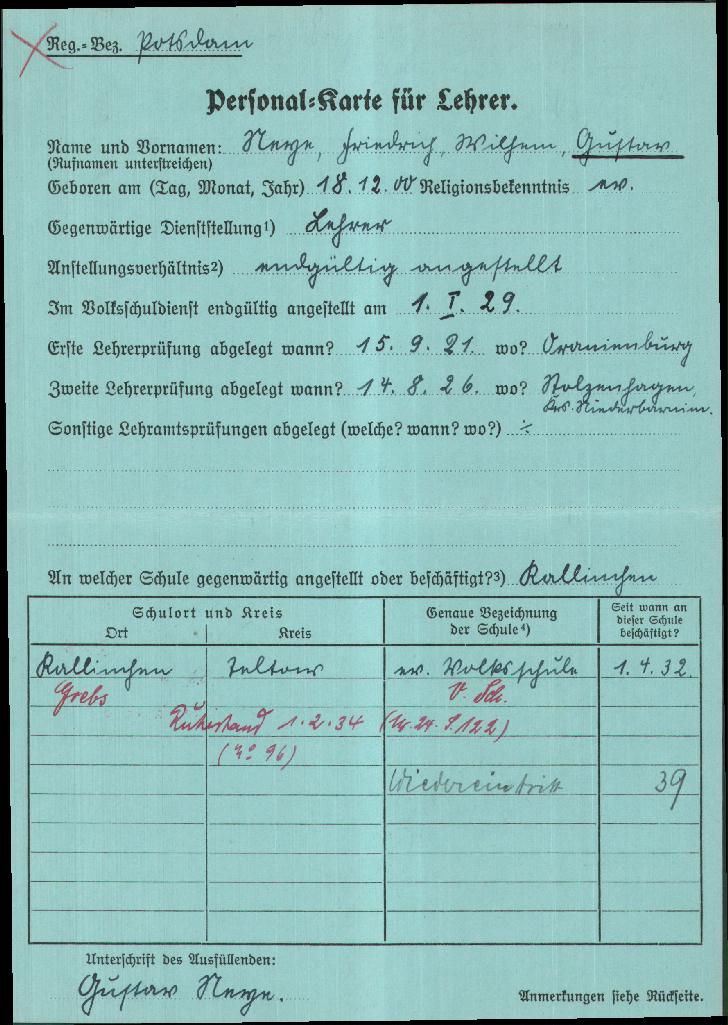 Reg.-Bez. Potsdam
Personal-Karte für Lehrer.
Name und Vornamen: Neye, Friedrich, Wilhelm, Gustav
(Rufnamen unterstreichen)
Geboren am (Tag, Monat, Jahr) 18.12.00 Religionsbekenntnis ev.
Gegenwärtige Dienststellung¹) Lehrer
Anstellungsverhältnis²) endgültig angestellt
Im Volksschuldienst endgültig angestellt am 1. I. 29.
Erste Lehrerprüfung abgelegt wann? 15. 9. 21. wo? Oranienburg
Zweite Lehrerprüfung abgelegt wann? 14. 8. 26. wo? Stolzenhagen,
Krs. Niederbarnim.
Sonstige Lehramtsprüfungen abgelegt (welche? wann? wo?) ÷
An welcher Schule gegenwärtig angestellt oder beschäftigt?³) Kallinchen
Schulort und Kreis
Ort Kreis
Genaue Bezeichnung
der Schule⁴)
Seit wann an
dieser Schule
beschäftigt?
Kallinchen Teltow ev. Volksschule 1.4.32.
Grebs V. Sch.
Ruhestand 1.2.34 24. S. 122)
96)
Wiedereintritt 39
Unterschrift des Ausfüllenden:
Gustav Neye.
Anmerkungen siehe Rückseite.